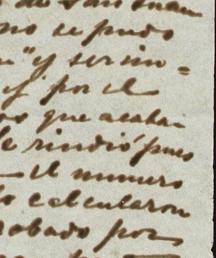 de San Juan
no se pudo
" y ser in=
y por el
que acaba
se rindió pues
el numero
calcularon
robado por